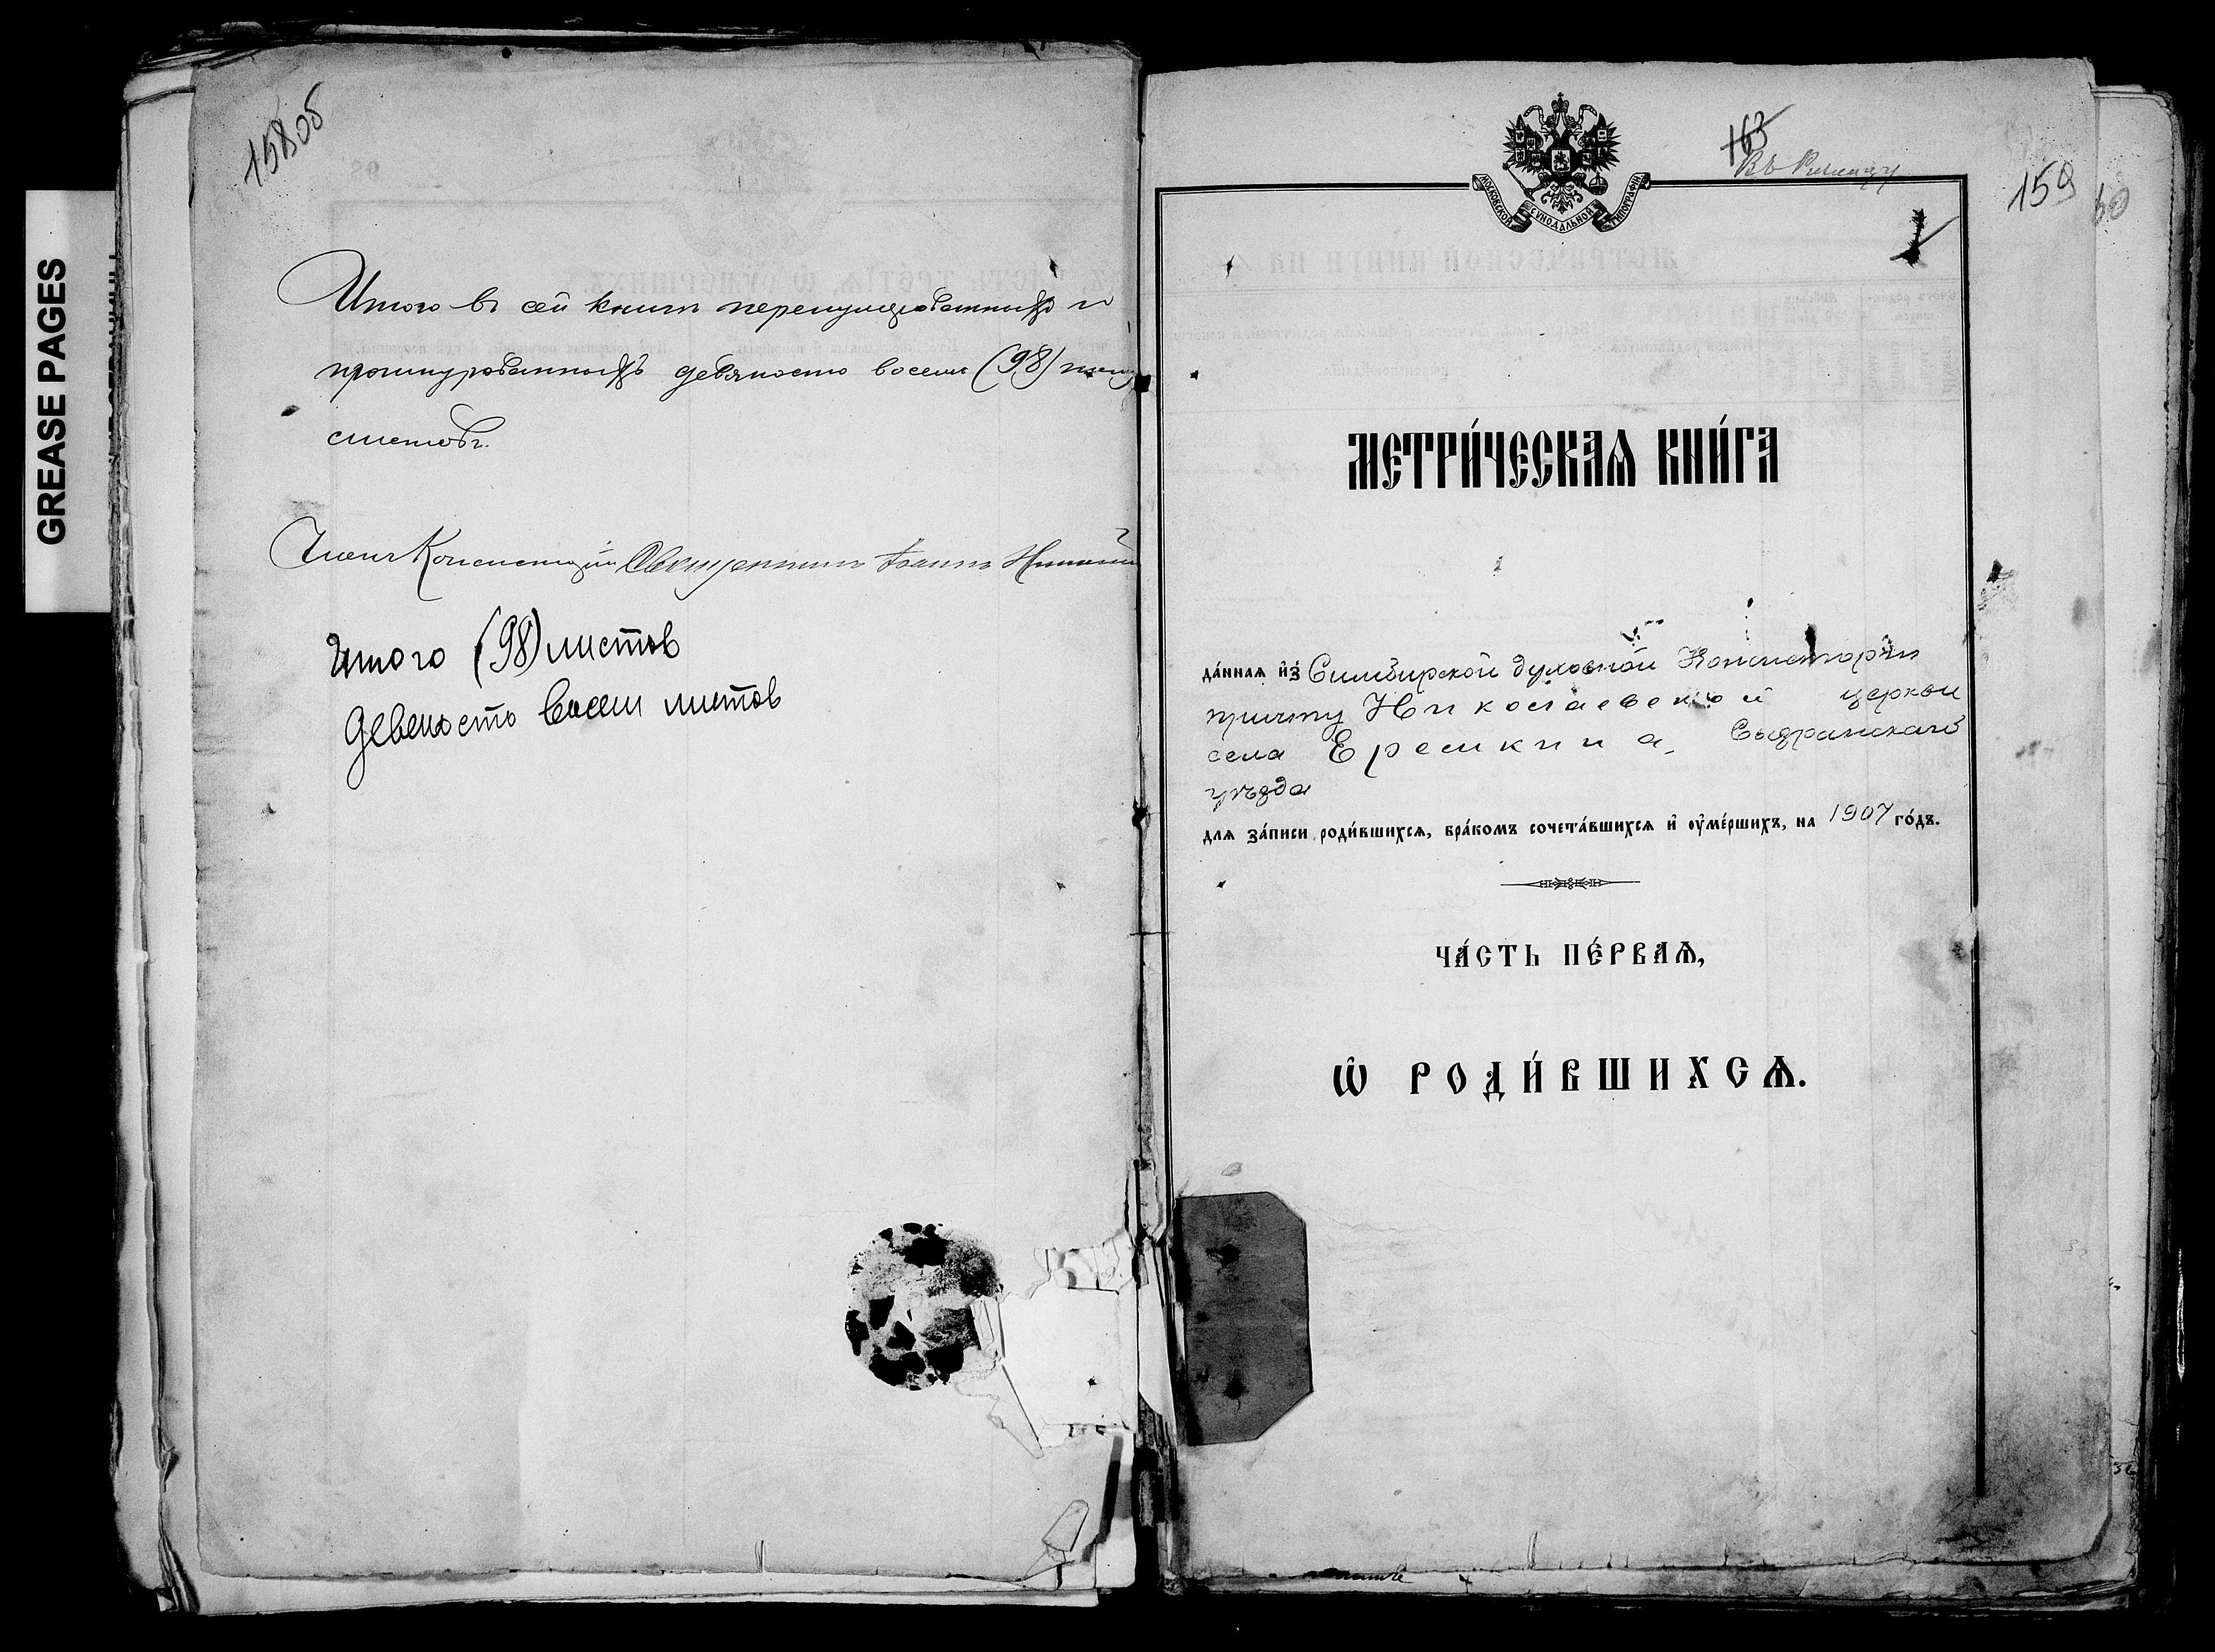 GREASE PAGES
158об
Итого въ сей книгѣ перенумерованныхъ и
прошнурованныхъ девяносто восемь (98)
листовъ.
Членъ Консисторіи Священникъ Іоаннъ
Итого (98) листов
Девеносто восем листов
163
159
60
МОСКОВСКОЙ СѴНОДАЛЬНОЙ ТИПОГРАФІИ
МЕТРИ́ЧЕСКАѦ КНИ́ГА
да́ннаѧ и҆з̾ Симбирской духовной Консисторіи
причту Николаевской церкви
села Еремкина, Сызранскаго
уѣзда
длѧ за́писи роди́вшихсѧ, бра́комъ сочета́вшихсѧ и҆ оу҆ме́ршихъ, на 1907 го́дъ.
ЧА́СТЬ ПЕ́РВАѦ,
Ѽ РОДИ́ВШИХСѦ.